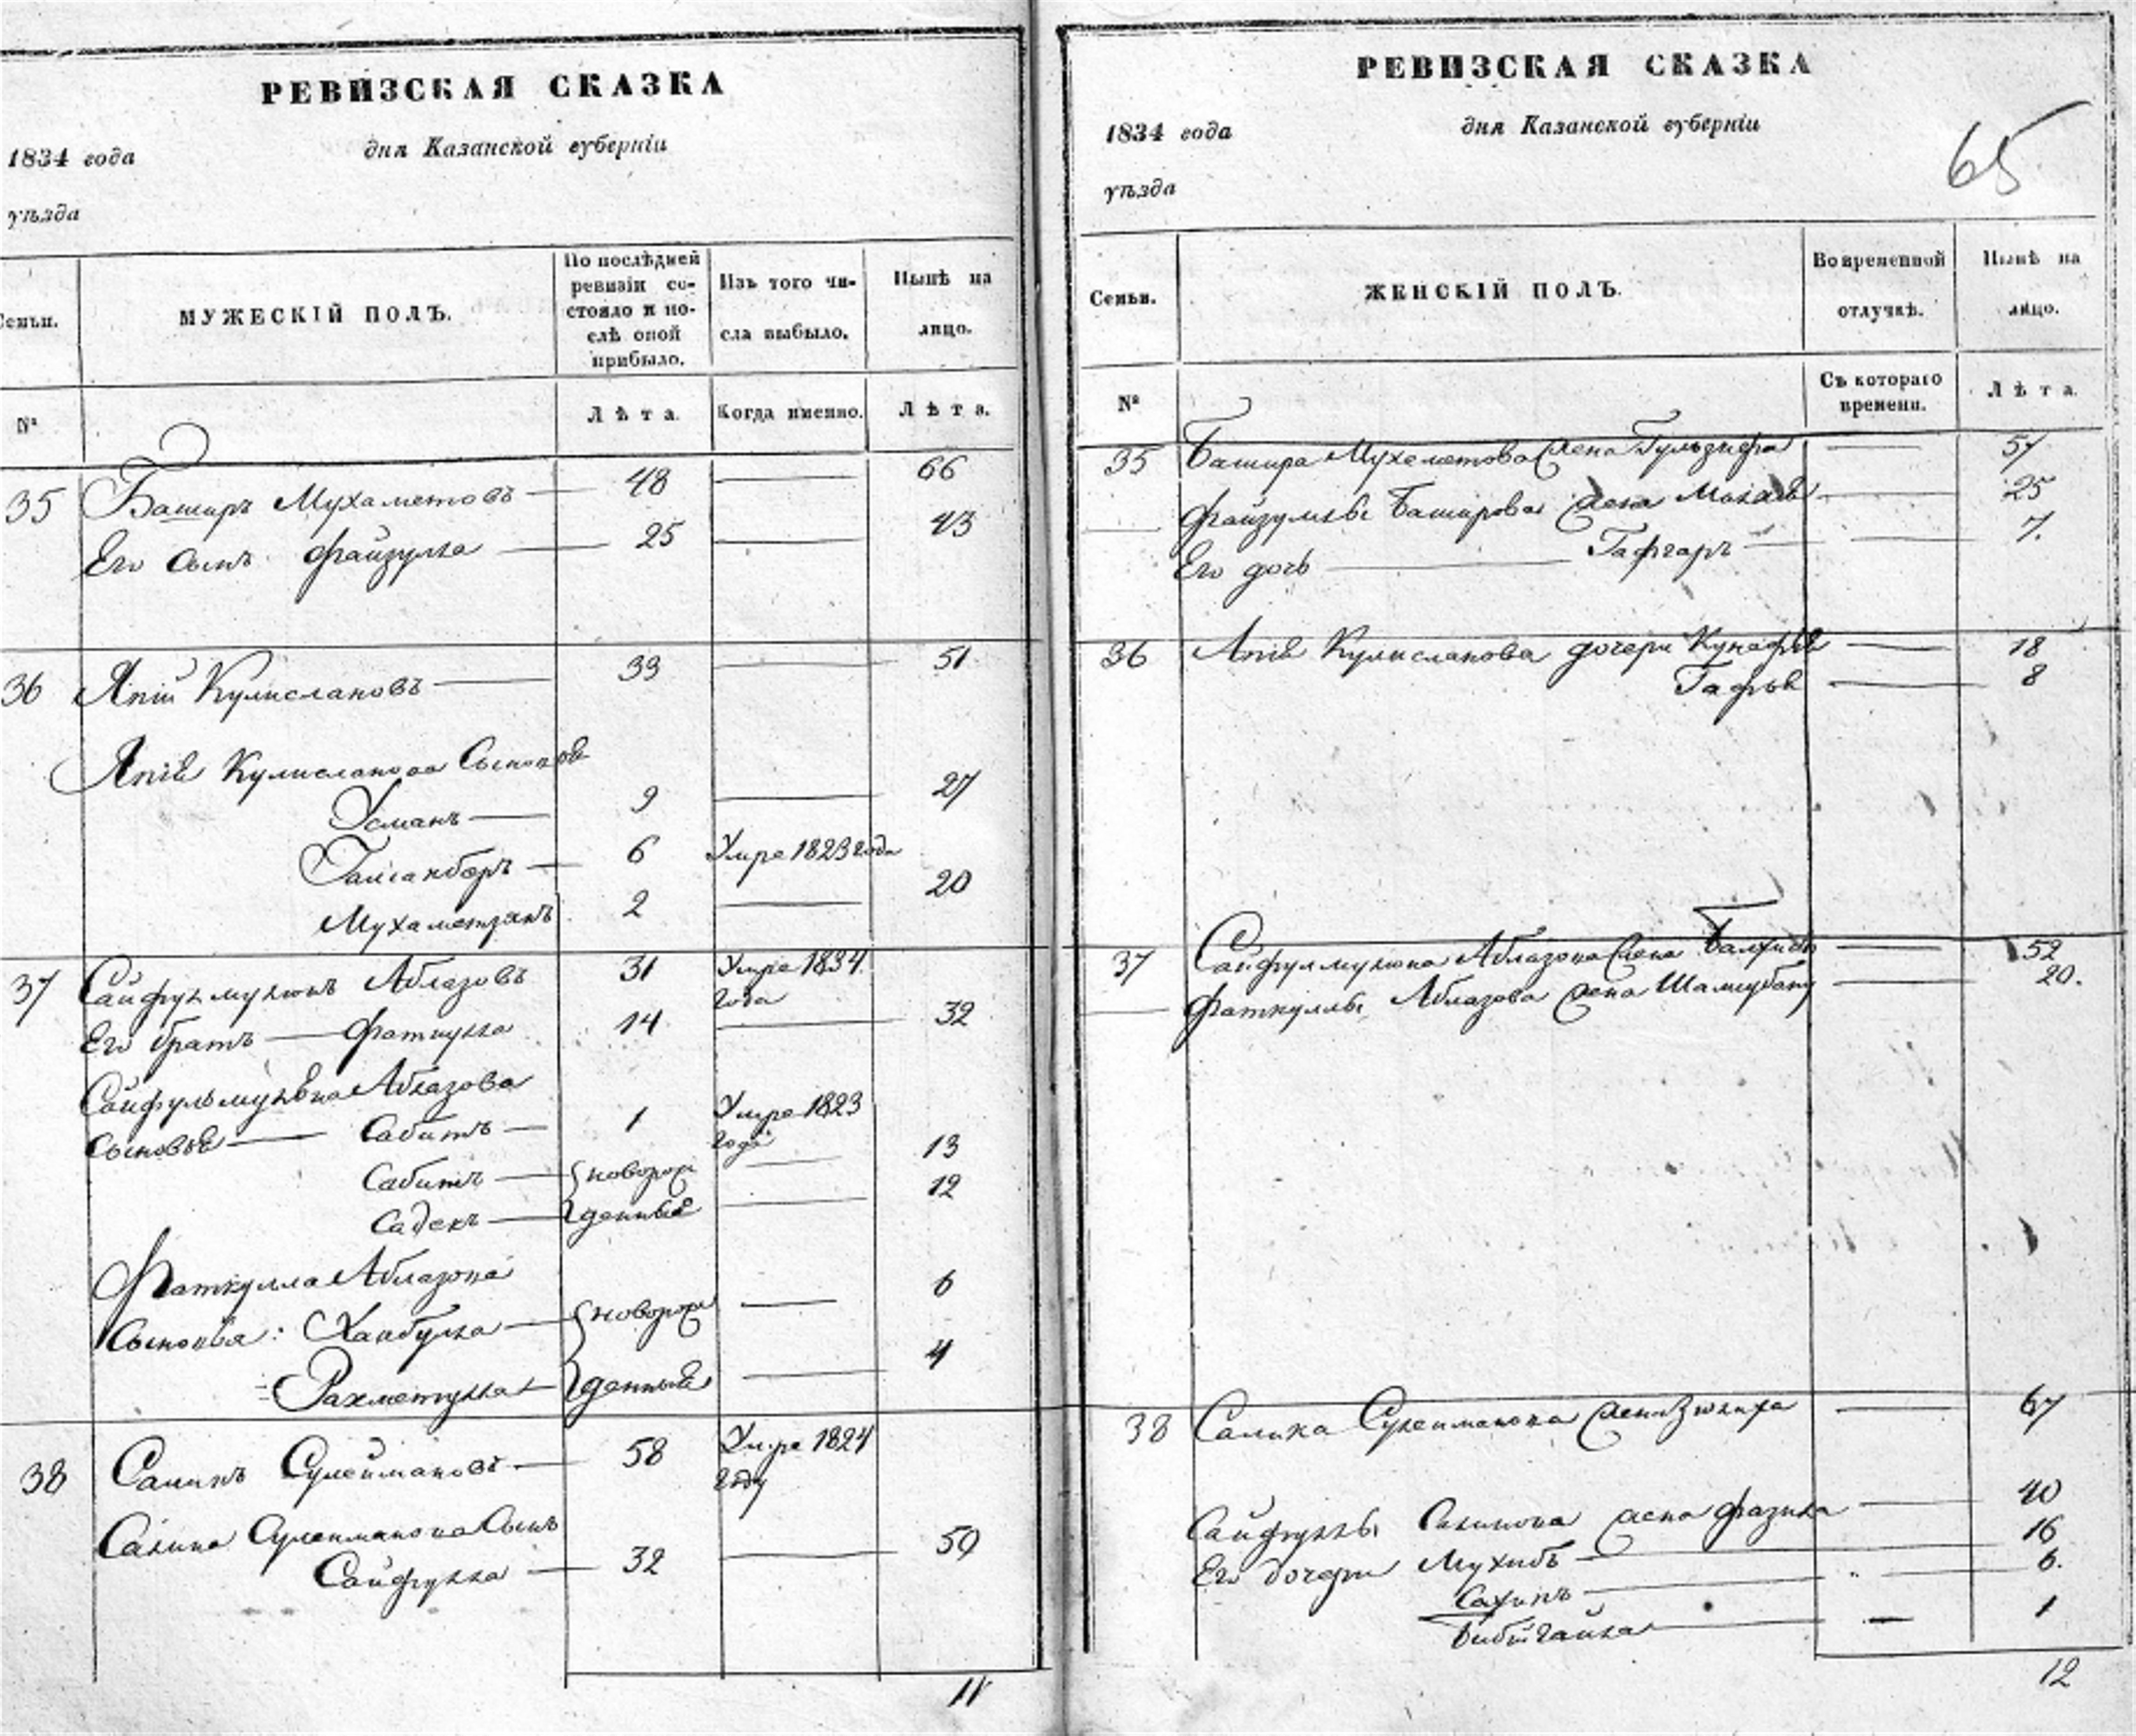 РЕВИЗСКАЯ СКАЗКА
1834 года дня Казанской губерніи
уѣзда
Семьи. МУЖЕСКІЙ ПОЛЪ. По послѣдней ревизіи состояло и послѣ оной прибыло. Изъ того числа выбыло. Нынѣ на лицо.
№ Лѣта. Когда именно. Лѣта.
35 Башир Мухаметовъ 48 66
Его сынъ Файзулла 25 43
36 Япій Кулислановъ 33 51
Япів Кулисланова Сыновья
Усманъ 9 27
6 Умре 1823 года
Мухаметзянъ 2 20
37 Сайфулмулюкъ Аблазовъ 31 Умре 1834 года
Его братъ Фаткулла 14 32
Сайфульмулюка Аблазова
Сыновья Сабитъ 1 Умре 1823 года
Сабитъ новорож 13
Садекъ денные 12
Фаткулла Аблазова
Сыновья: Хайбулла новорож 6
Рахметулла денные 4
38 Салихъ Сулеймановъ 58 Умре 1824 году
Салиха Сулейманова Сынъ
Сайфулла 32 50
11
РЕВИЗСКАЯ СКАЗКА
65
1834 года дня Казанской губерніи
уѣзда
Семьи. ЖЕНСКІЙ ПОЛЪ. Во временной отлучкѣ. Нынѣ на лицо.
№ Съ котораго времени. Лѣта.
35 Башира Мухаметова жена Гульзифа 57
Файзуллы Баширова жена 25
Его дочь 7.
36 Япів Кулисланова дочери 18
8
37 Сайфулмулюка Аблазова жена 52
Фаткуллы Аблазова жена Шамсубану 20.
38 Салиха Сулейманова жена Зюлиха 67
Сайфуллы Салихова жена Фазила 40
Его дочери 16
6.
1
12